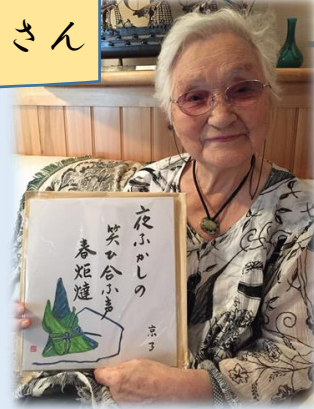 さん
夜ふかしの
笑ひ合ふ声
春炬燵
京子